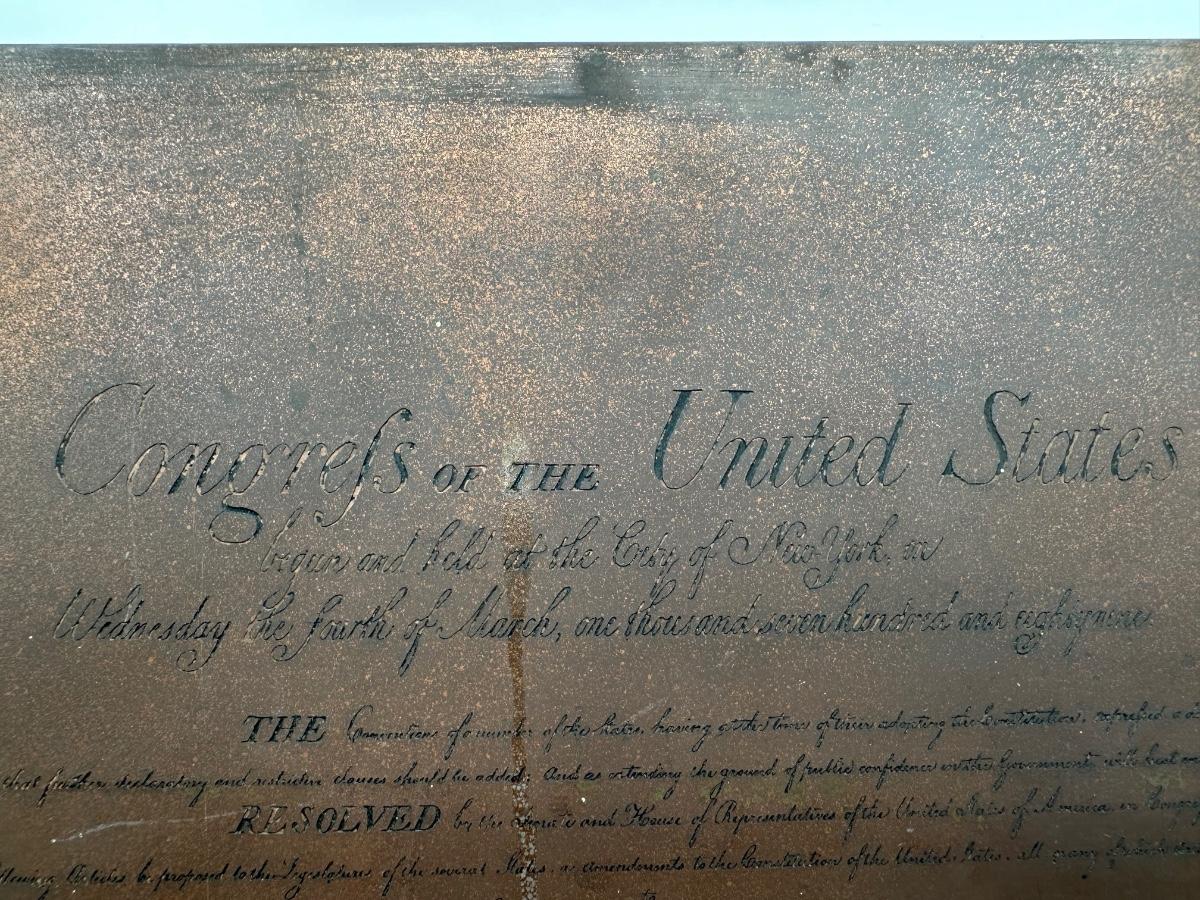 Congreſs OF THE United States
begun and held at the City of New-York, on
Wednesday the fourth of March, one thousand seven hundred and eighty nine
THE Conventions of a number of the States, having at the time of their adopting the Constitution, expressed a
that further declaratory and restrictive clauses should be added: And as extending the ground of public confidence in the Government, will best
RESOLVED by the Senate and House of Representatives of the United States of America, in
Articles be proposed to the Legislatures of the several States, as amendments to the Constitution of the United States, all